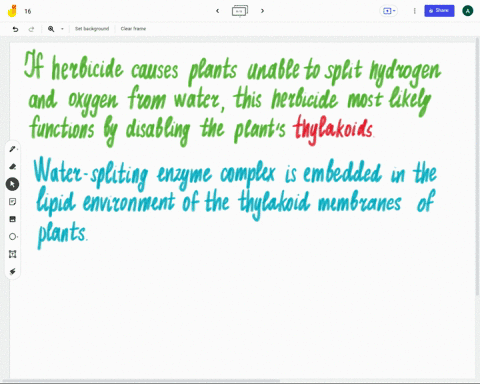 16
Share
A
Set background
Clear frame
If herbicide causes plants unable to split hydrogen
and oxygen from water, this herbicide most likely
functions by disabling the plant's thylakoids.
Water-spliting enzyme complex is embedded in the
lipid environment of the thylakoid membranes of
plants.